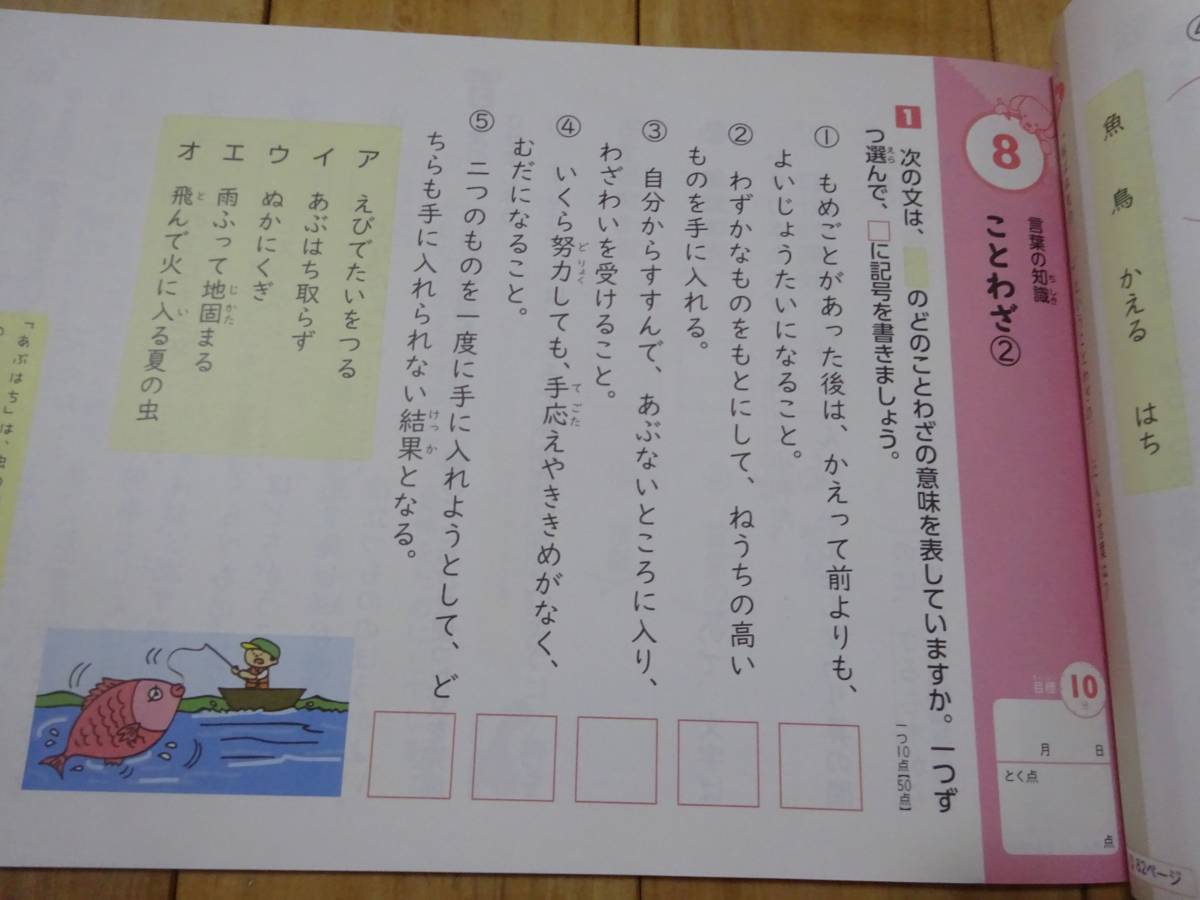 魚　鳥　かえる　はち
82ページ
8
言葉の知識
ことわざ②
目標
10
分
月　日
とく点
点
1 次の文は、　のどのことわざの意味を表していますか。一つず
つ選んで、□に記号を書きましょう。
一つ10点【50点】
① もめごとがあった後は、かえって前よりも、
よいじょうたいになること。
② わずかなものをもとにして、ねうちの高い
ものを手に入れる。
③ 自分からすすんで、あぶないところに入り、
わざわいを受けること。
④ いくら努力しても、手応えやききめがなく、
むだになること。
⑤ 二つのものを一度に手に入れようとして、ど
ちらも手に入れられない結果となる。
ア えびでたいをつる
イ あぶはち取らず
ウ ぬかにくぎ
エ 雨ふって地固まる
オ 飛んで火に入る夏の虫
「あぶはち」は、虫の